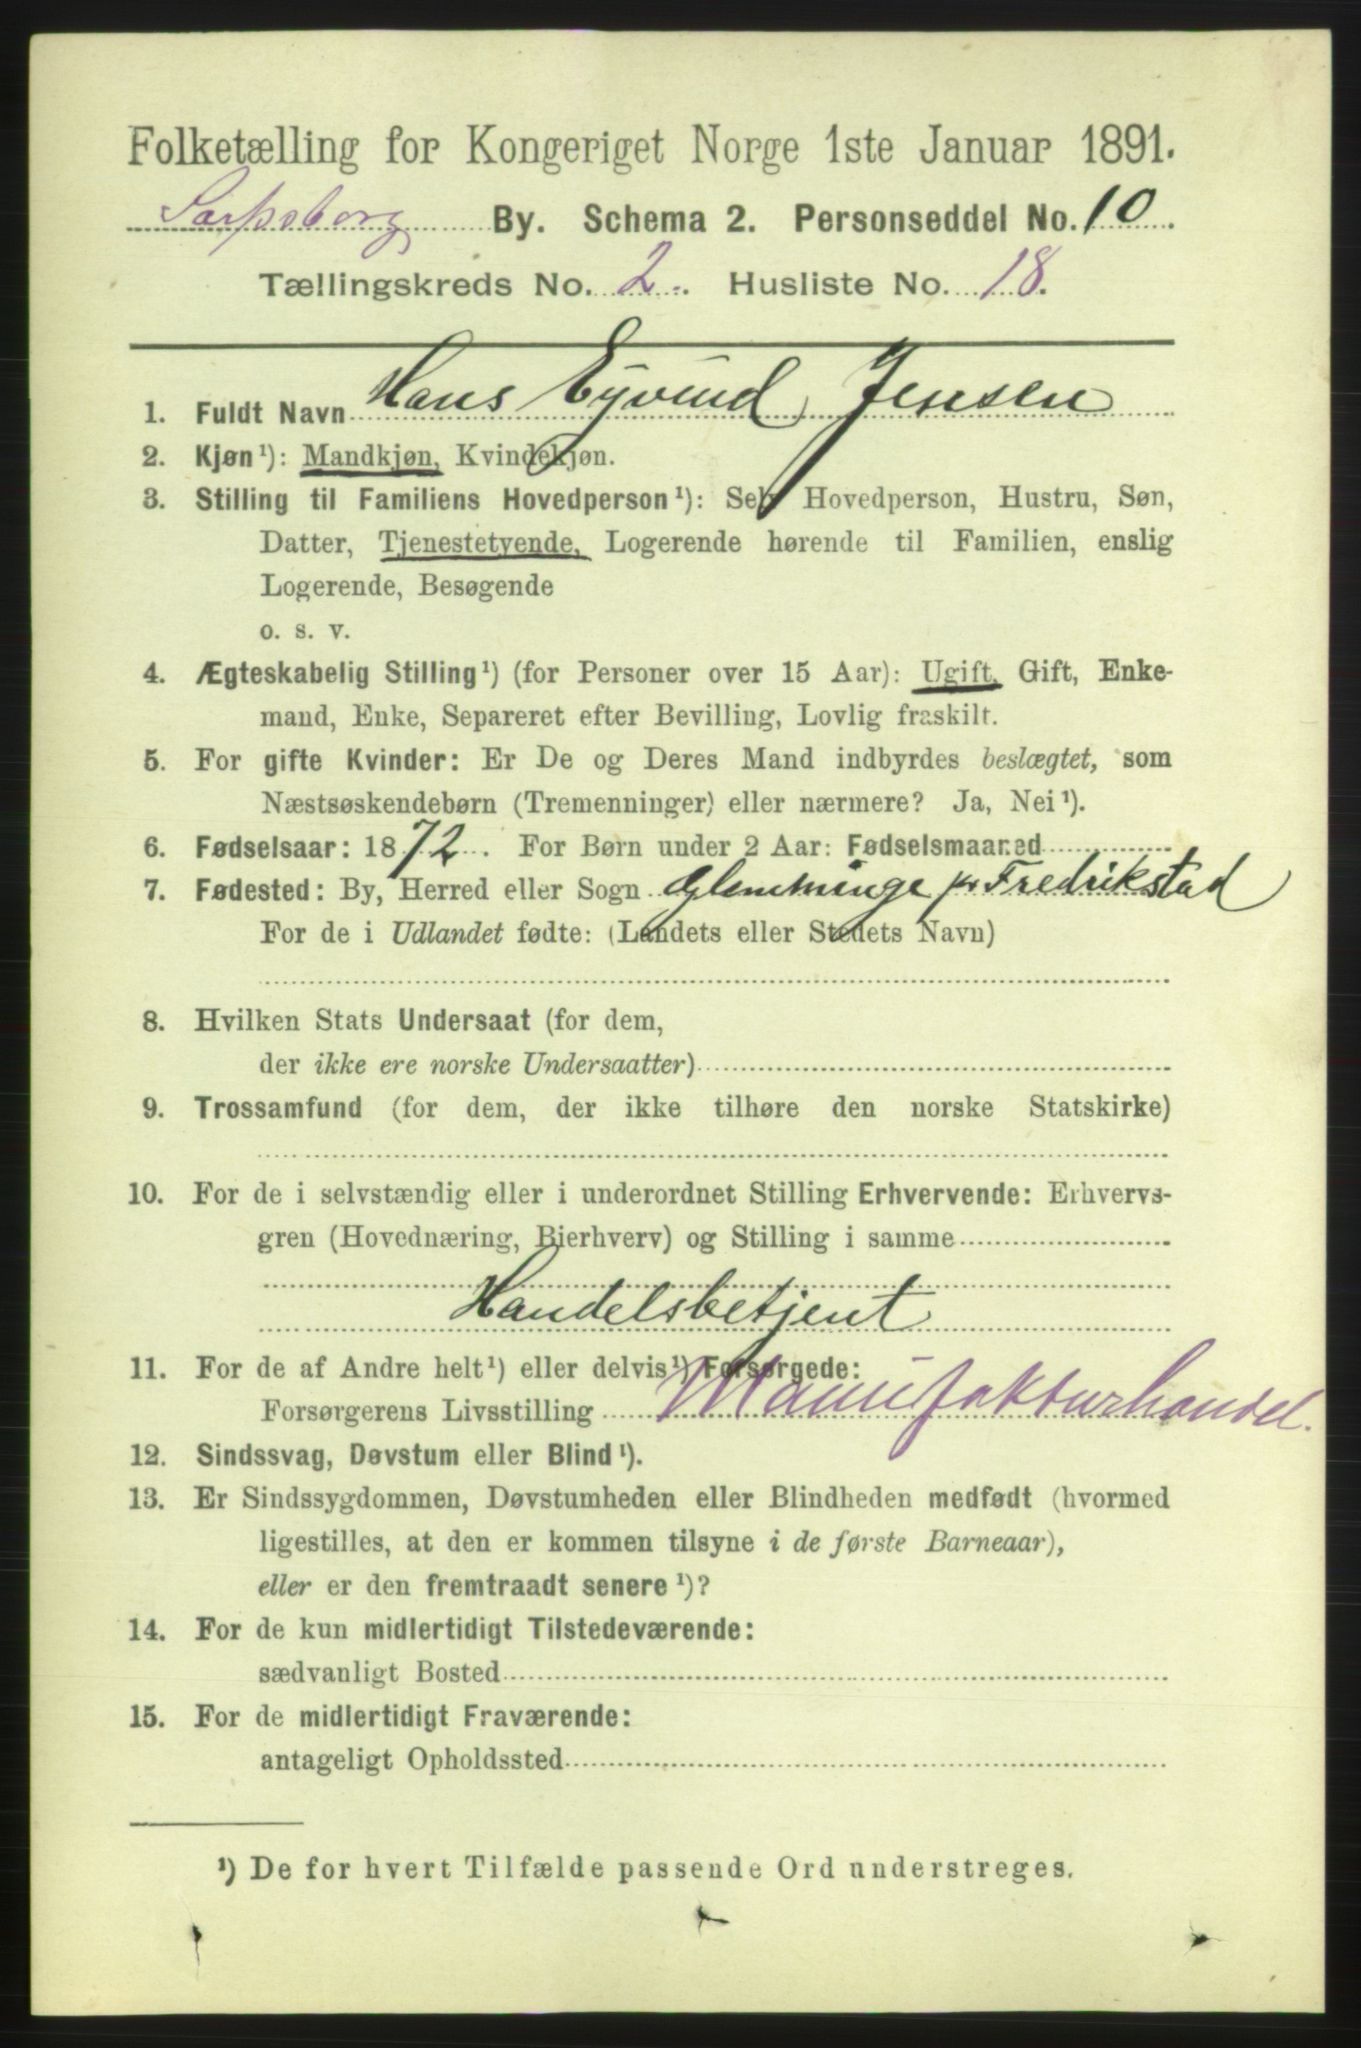 Folketælling for Kongeriget Norge 1ste Januar 1891.
Sarpsborg By. Schema 2. Personseddel No. 10.
Tællingskreds No. 2. Husliste No. 18.
1. Fuldt Navn Hans Eyvind Jensen
2. Kjøn ¹): Mandkjøn, Kvindekjøn.
3. Stilling til Familiens Hovedperson ¹): Selv Hovedperson, Hustru, Søn,
Datter, Tjenestetyende, Logerende hørende til Familien, enslig
Logerende, Besøgende
o. s. v.
4. Ægteskabelig Stilling ¹) (for Personer over 15 Aar): Ugift, Gift, Enke-
mand, Enke, Separeret efter Bevilling, Lovlig fraskilt.
5. For gifte Kvinder: Er De og Deres Mand indbyrdes beslægtet, som
Næstsøskendebørn (Tremenninger) eller nærmere? Ja, Nei ¹).
6. Fødselsaar: 1872. For Børn under 2 Aar: Fødselsmaaned
7. Fødested: By, Herred eller Sogn Glemminge pr Fredrikstad
For de i Udlandet fødte: (Landets eller Stedets Navn)
8. Hvilken Stats Undersaat (for dem,
der ikke ere norske Undersaatter)
9. Trossamfund (for dem, der ikke tilhøre den norske Statskirke)
10. For de i selvstændig eller i underordnet Stilling Erhvervende: Erhvervs-
gren (Hovednæring, Bierhverv) og Stilling i samme
Handelsbetjent
11. For de af Andre helt ¹) eller delvis ¹) Forsørgede:
Forsørgerens Livsstilling Manufakturhandel.
12. Sindssvag, Døvstum eller Blind ¹).
13. Er Sindssygdommen, Døvstumheden eller Blindheden medfødt (hvormed
ligestilles, at den er kommen tilsyne i de første Barneaar),
eller er den fremtraadt senere ¹)?
14. For de kun midlertidigt Tilstedeværende:
sædvanligt Bosted
15. For de midlertidigt Fraværende:
antageligt Opholdssted
¹) De for hvert Tilfælde passende Ord understreges.